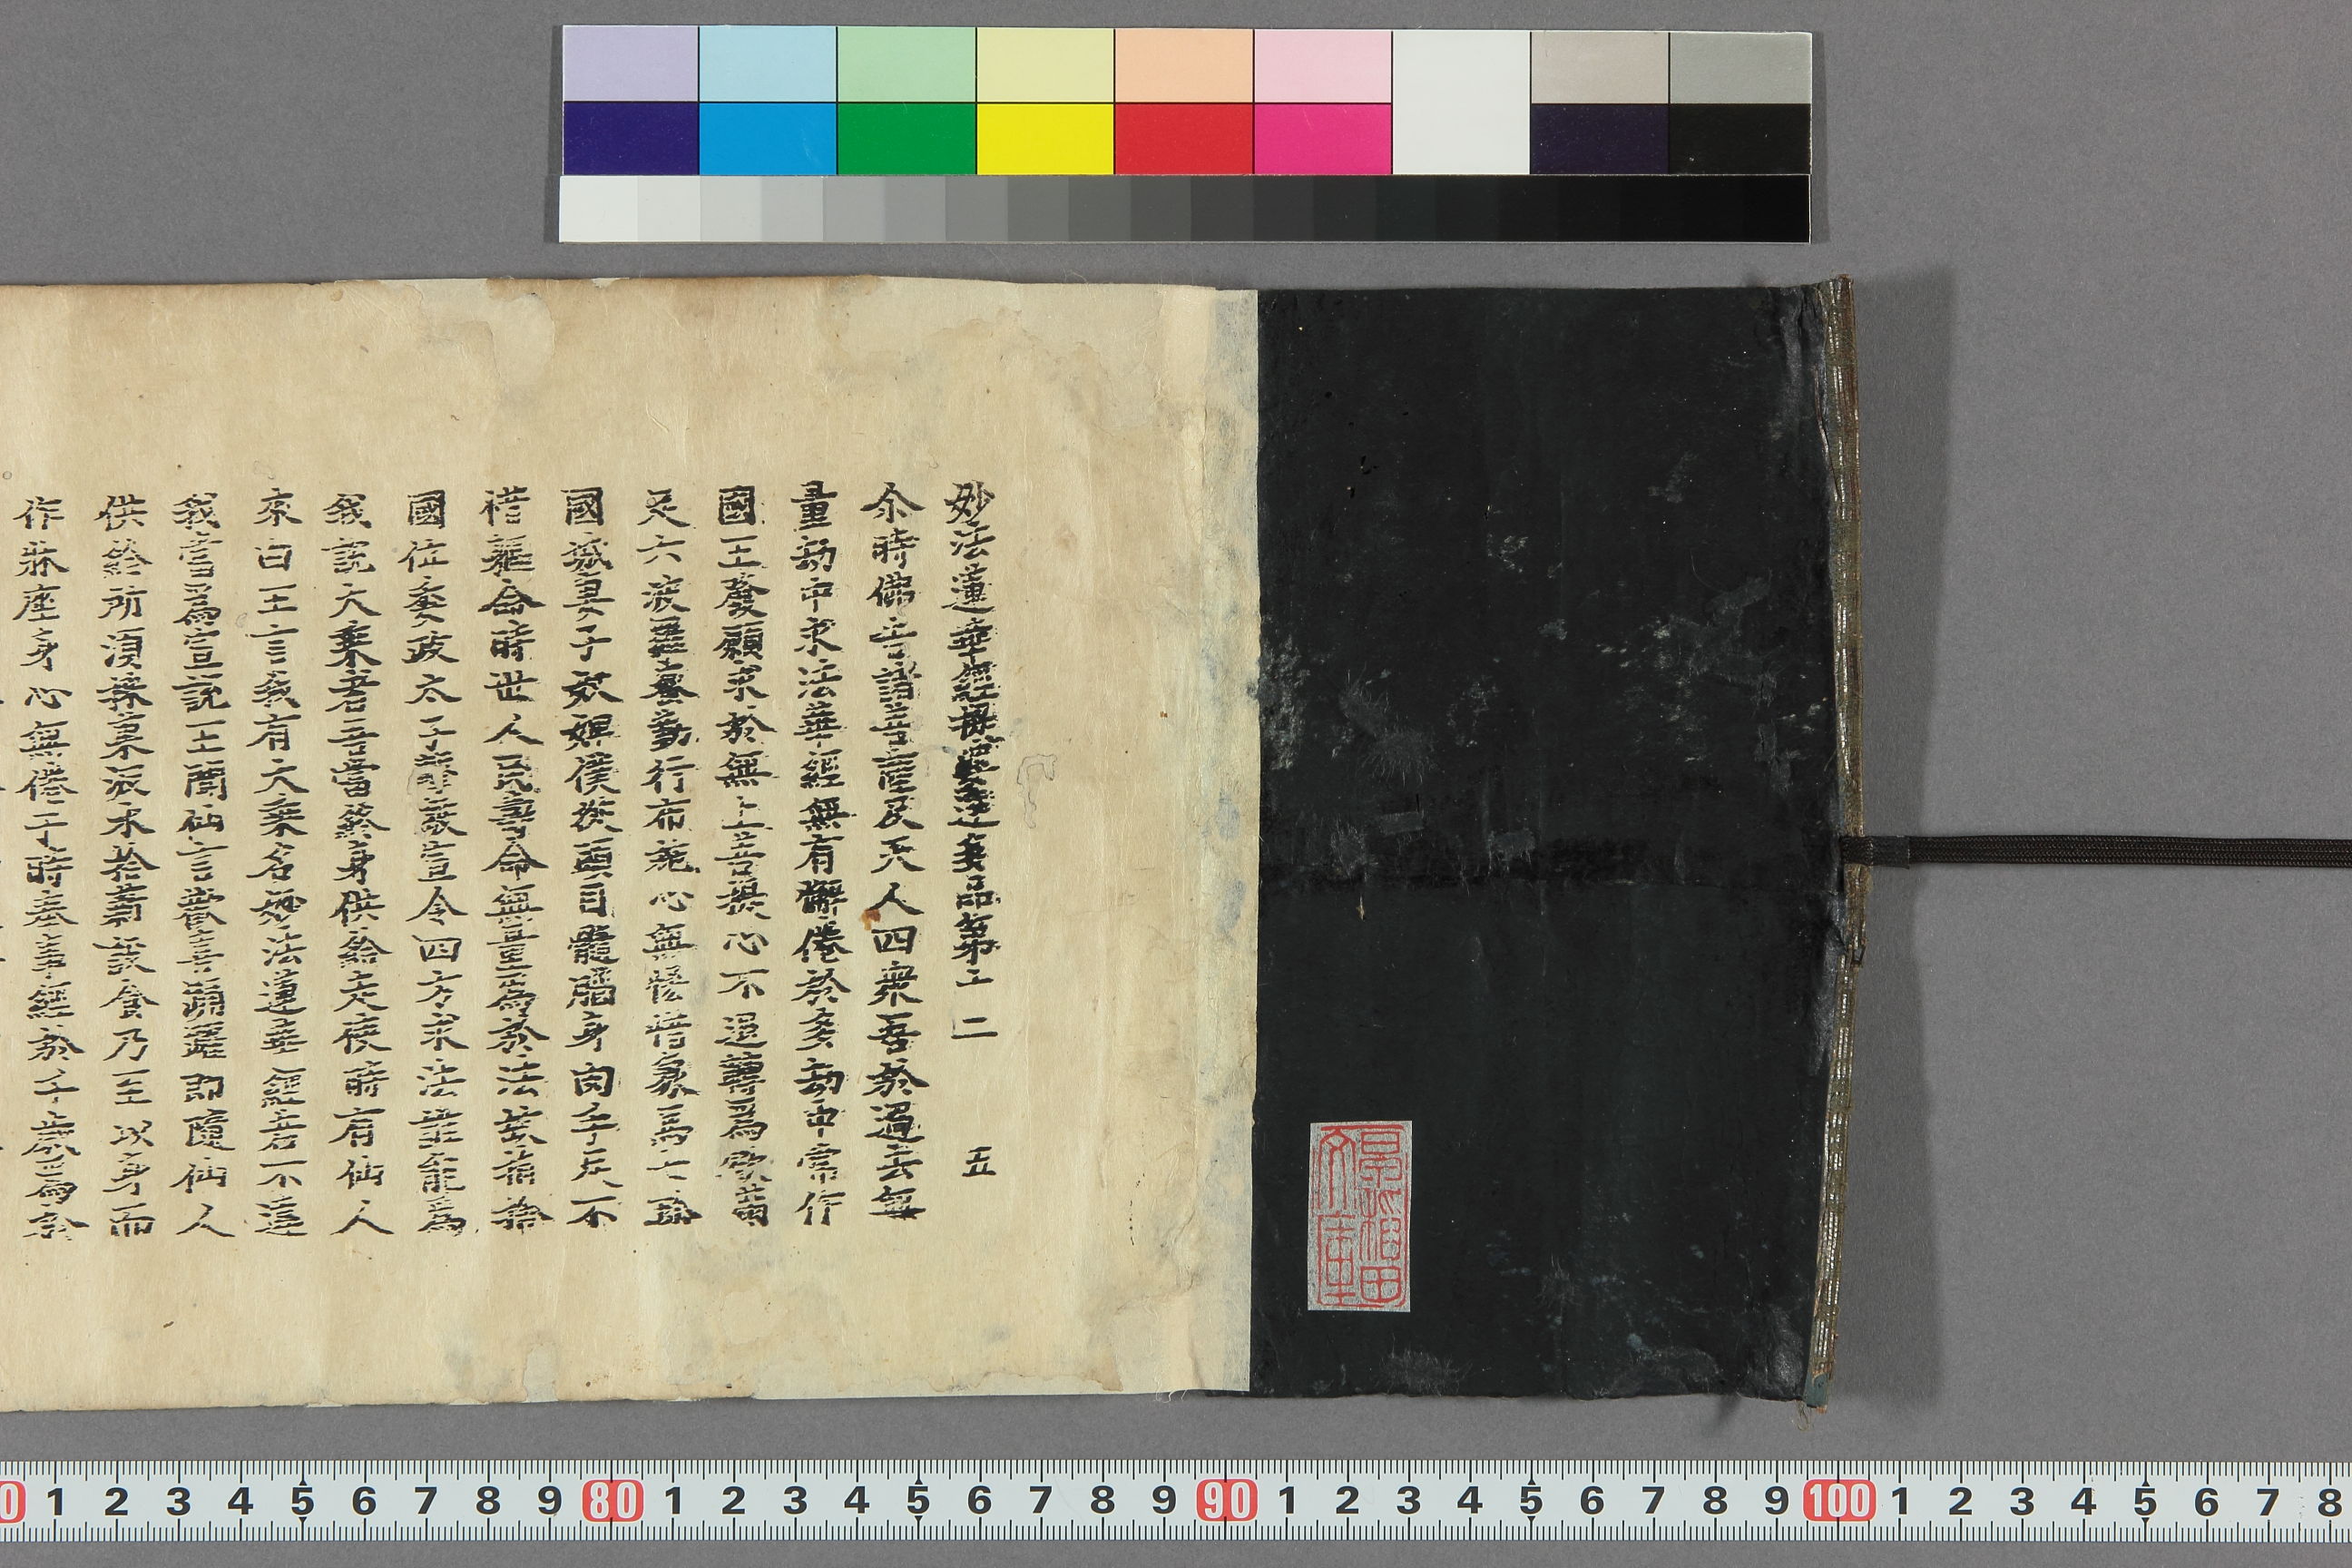 妙法蓮華經提婆達多品第十二　五
尒時佛告諸菩薩及天人四衆吾於過去無
量劫中求法華經無有懈倦於多劫中常作
國王發願求於無上菩提心不退轉爲欲滿
足六波羅蜜勤行布施心無悋惜象馬七珎
國城妻子奴婢僕從頭目髓腦身肉手足不
惜軀命時世人民壽命無量爲於法故捐捨
國位委政太子擊鼓宣令四方求法誰能爲
我說大乘者吾當終身供給走使時有仙人
來白王言我有大乘名妙法蓮華經若不違
我當爲宣說王聞仙言歡喜踊躍即隨仙人
供給所須採菓汲水拾薪設食乃至以身而
作牀座身心無倦于時奉事經於千歲爲於
文庫
0 1 2 3 4 5 6 7 8 9 80 1 2 3 4 5 6 7 8 9 90 1 2 3 4 5 6 7 8 9 100 1 2 3 4 5 6 7 8